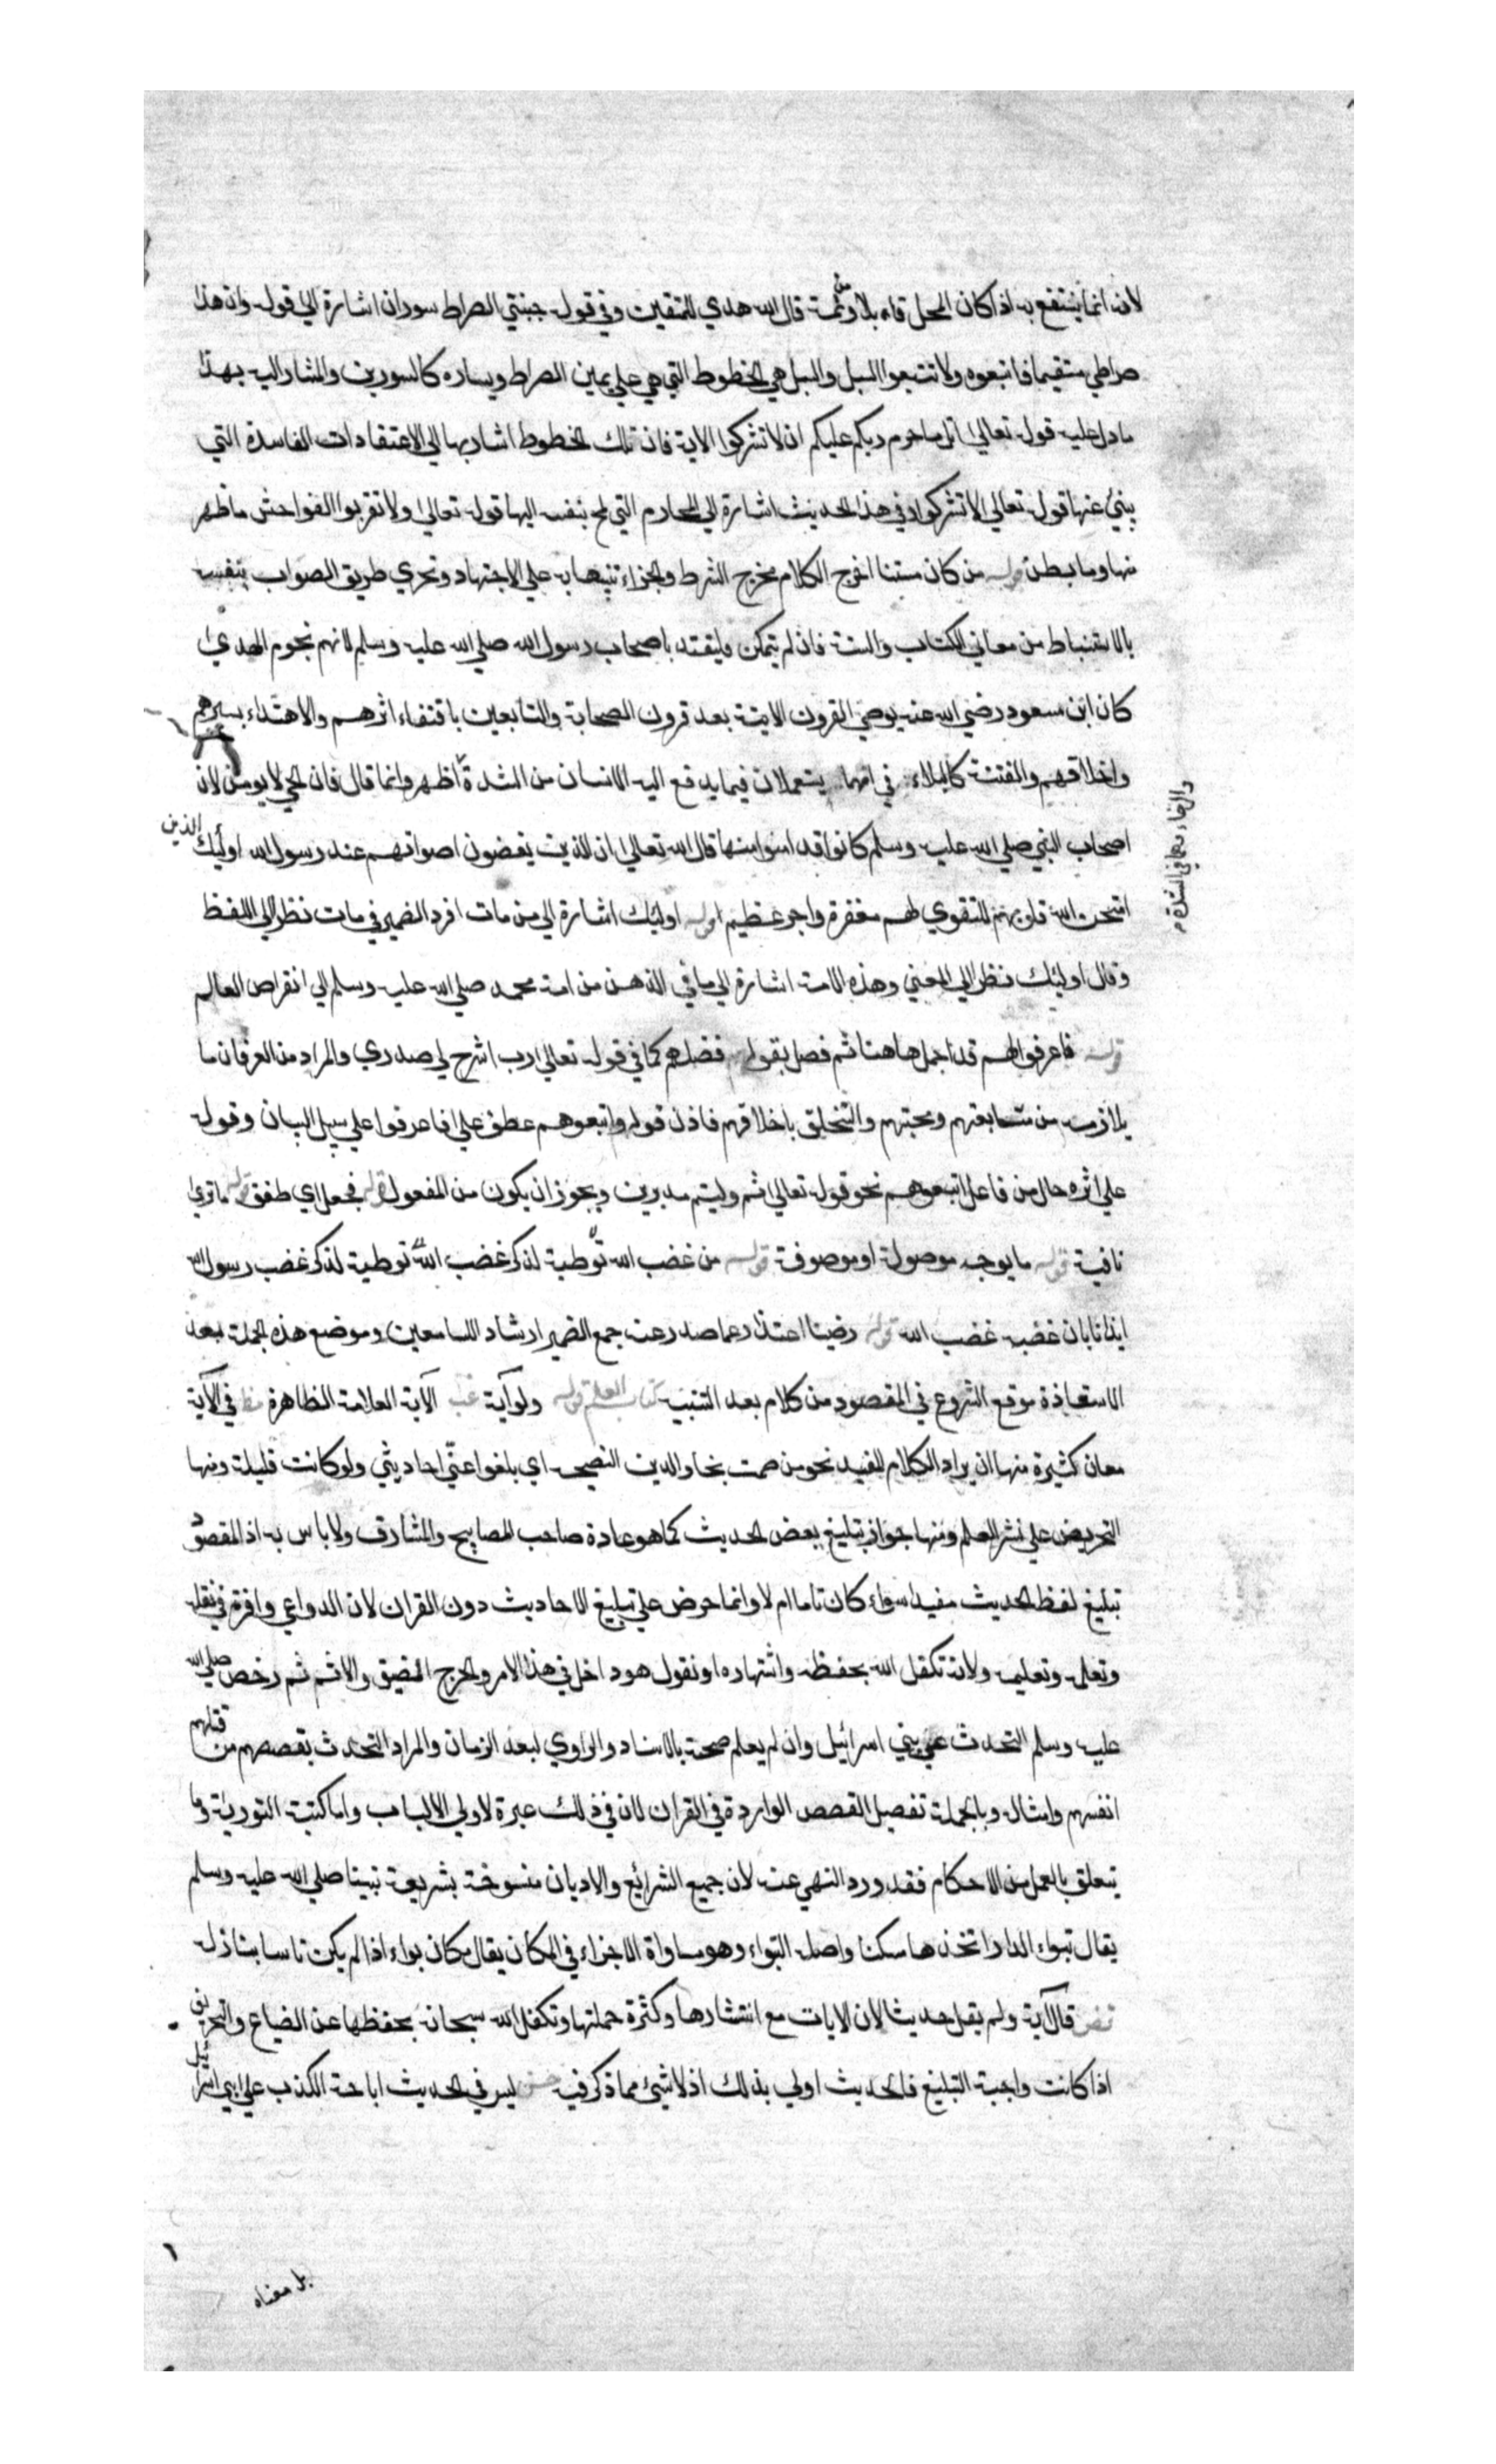 لانه انما ينتفع به اذا كان المحل قابلا ومن ثمة قال الله هدي للمتقين وفي قوله جنبتي الصراط سوران اشارة الي قوله وان هذا
صراطي مستقيما فاتبعوه ولا تتبعوا السبل والسبل هي الخطوط التي هي علي يمين الصراط ويساره كالسورين والمشار اليه بهذا
ما دل عليه قوله تعالي اتل ما حرم ربكم عليكم ان لا تشركوا الاية فان تلك الخطوط اشار بها الي الاعتقادات الفاسدة التي
ينبئ عنها قوله تعالي الا تشركوا وفي هذا الحديث اشارة الي المحارم التي لم بنفسه اليها قوله تعالي ولا تقربوا الفواحش ما ظهر
منها وما بطن قوله من كان مستنا اخرج الكلام مخرج الشرط والجزاء تنبيها به علي الاجتهاد وتحري طريق الصواب بنفسه
بالاستنباط من معاني الكتاب والسنة فان لم يتمكن فليقتد باصحاب رسول الله صلي الله عليه وسلم لانهم نجوم الهدي
كان ابن مسعود رضي الله عنه يوصي القرون الاتية بعد قرون الصحابة والتابعين باقتفاء اثرهم والاهتداء بسيرهم
واخلاقهم والفتنة كالبلاء في انهما يستعملان فيما يدفع اليه الانسان من الشدة اظهر وانما قال فان الحي لا يومن لان
والرخاء وهما في الشدة
اصحاب النبي صلي الله عليه وسلم كانوا قد امنوا منها قال الله تعالي ان الذين يغضون اصواتهم عند رسول الله اوليك الذين
امتحن الله قلوبهم للتقوي لهم مغفرة واجر عظيم قوله اوليك اشارة الي من مات افرد الضمير في مات نظرا الي اللفظ
وقال اوليك نظرا الي المعني وهذه الامة اشارة الي ما في الذهن من امة محمد صلي الله عليه وسلم الي انقراض العالم
قوله فاعرفوا لهم قد اجمل هاهنا ثم فصل بقوله فضلهم كما في قوله تعالي رب اشرح لي صدري والمراد من العرفان ما
يلازمه من متابعتهم ومحبتهم والتخلق باخلاقهم فاذن قوله واتبعوهم عطف علي فاعرفوا علي سبيل البيان وقوله
علي اثره حال من فاعل اتبعوهم نحو قوله تعالي ثم وليتم مدبرين ويجوز ان يكون من المفعول قوله فجعل اي طفق قوله ما تري
نافية قوله ما بوجه موصولة او موصوفة قوله من غضب الله توطية لذكر غضب الله توطية لذكر غضب رسول الله
ايذانا بان غضبه غضب الله قوله رضينا اعتذار عما صدر عنه جمع الضمير ارشادا للسامعين وموضع هذه الجملة بعد
الاستعاذة موقع الشروع في المقصود من كلام بعد التنبيه كتاب العلم قوله ولو آية الآية العلامة الظاهرة في الآية
معان كثيرة منها ان يراد الكلام المفيد نحو من صمت نجا والدين النصيحة اي بلغوا عني احاديثي ولو كانت قليلة ومنها
التحريض علي نشر العلم ومنها جواز تبليغ بعض الحديث كما هو عادة صاحب المصابيح والمشارق ولا باس به اذ المقصود
تبليغ لفظ الحديث مفيدا سواء كان تاما ام لا وانما حرض علي تبليغ الاحاديث دون القران لان الدواعي وافرة في نقله
وتعلمه وتعليمه ولانه تكفل الله بحفظه واشتهاره او نقول هو داخل في هذا الامر والحرج الضيق والاثم ثم رخص صلي الله
عليه وسلم التحدث عن بني اسرائيل وان لم يعلم صحته بالاسناد والراوي لبعد الزمان والمراد التحدث بقصصهم من قتلهم
انفسهم وامثاله وبالجملة تفصيل القصص الواردة في القران لان في ذلك عبرة لاولي الالباب واما كتبة التورية وما
يتعلق بالعمل من الاحكام فقد ورد النهي عنه لان جميع الشرائع والاديان منسوخة بشريعة نبينا صلي الله عليه وسلم
يقال تبوء الدار اتخذها مسكنا واصل البواء وهو مساواة الاجزاء في المكان يقال مكان بواء اذا لم يكن
قال آية ولم يقل حديثا لان الايات مع انتشارها وكثرة حملتها وتكفل الله سبحانه بحفظها عن الضياع والتحريف
اذا كانت واجبة التبليغ فالحديث اولي بذلك اذ لا شئ مما ذكر فيه ليس في الحديث اباحة الكذب علي بني اسرائيل
بل معناه